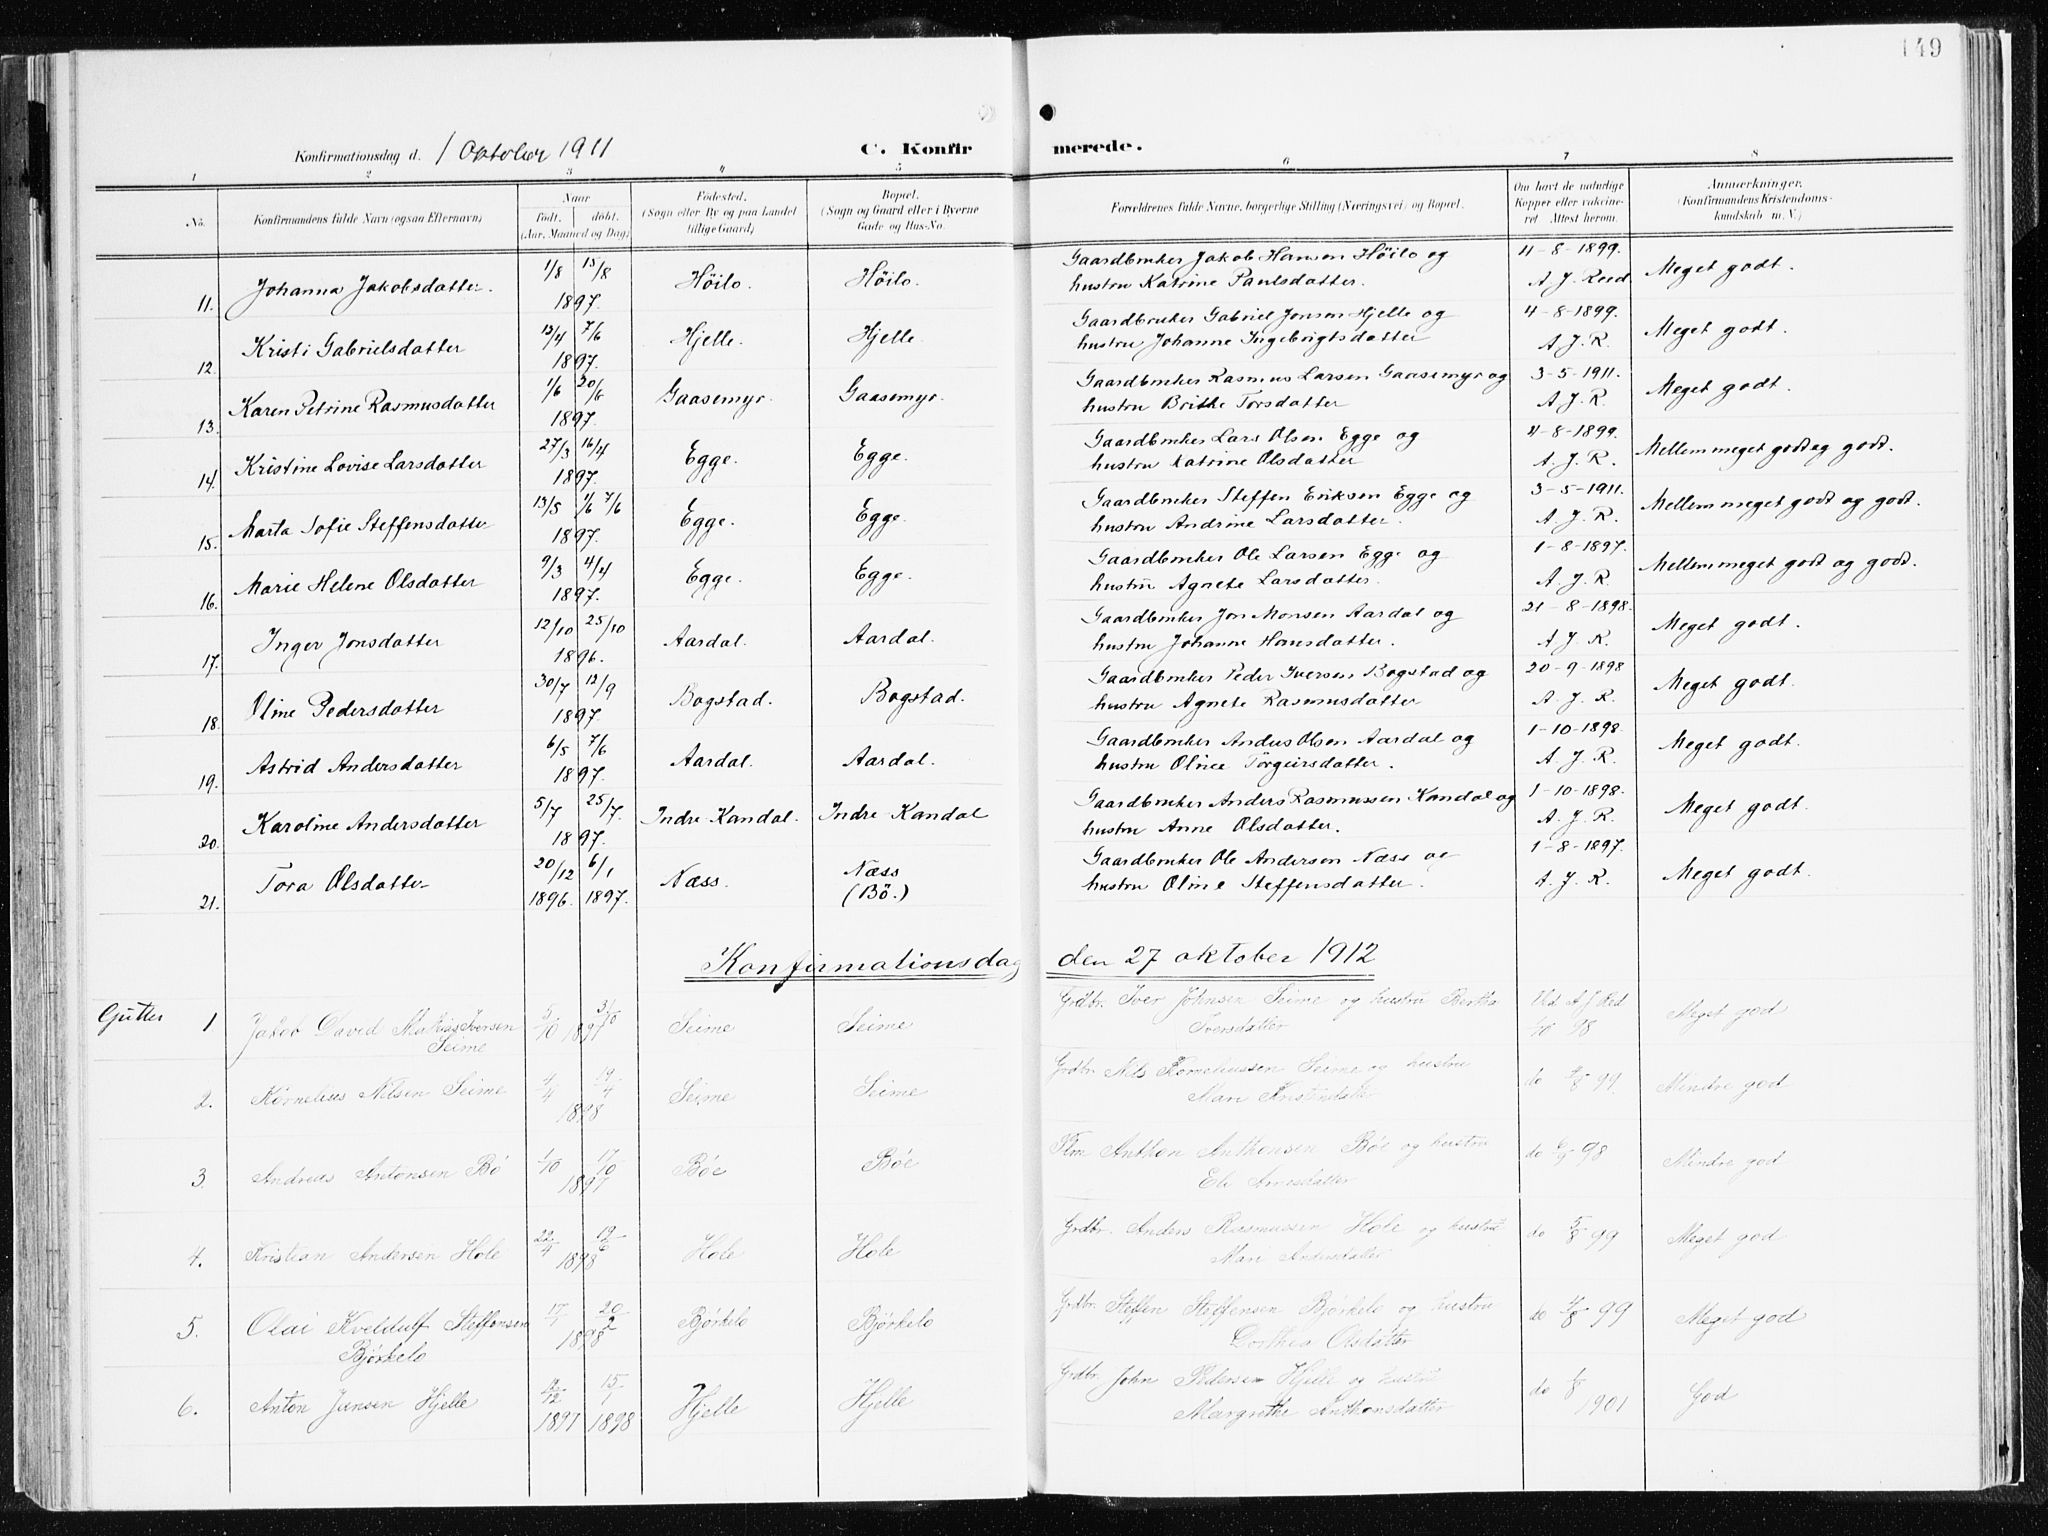 149
Konfirmationsdag d. 1 Oktober 1911 C. Konfirmerede.
1 2 3 4 5 6 7 8
No. Konfirmandens fulde Navn (ogsaa Efternavn) Naar født, døbt. (Aar, Maaned og Dag) Fødested. (Sogn eller By og paa Landet tillige Gaard) Bopæl. (Sogn og Gaard eller i Byerne Gade og Hus-No. Forældrenes fulde Navne, borgerlige Stilling (Næringsvei) og Bopæl. Om havt de naturlige Kopper eller vakcineret. Attest herom. Anmærkninger. (Konfirmandens Kristendomskundskab m. V.)
11. Johanna Jakobsdatter. 1/8 15/8 1897. Höilo. Höilo. Gaardbruker Jakob Hansen Höilo og hustru Katrine Paulsdatter. 4-8-1899. A. J. Reed Meget godt.
12. Kristi Gabrielsdatter 13/4 7/6 1897. Hjelle. Hjelle. Gaardbruker Gabriel Jonson Hjelle og hustru Johanne Ingebrigtsdatter 4-8-1899. A. J. R. Meget godt.
13. Karen Petrine Rasmusdatter 1/6 20/6 1897. Gaasemyr. Gaasemyr. Gaardbruker Rasmus Larsen Gaasemyr og hustru Brithe Torsdatter 3-5-1911. A. J. R. Meget godt.
14. Kristine Lovise Larsdatter 27/3 16/4 1897. Egge. Egge. Gaardbruker Lars Olsen Egge og hustru Katrine Olsdatter 4-8-1899. A. J. R. Mellem meget godt og godt.
15. Marta Sofie Steffensdatter 13/5 1/6 7/6 1897. Egge. Egge. Gaardbruker Steffen Eriksen Egge og hustru Andrine Larsdatter. 3-5-1911. A. J. R. Mellem meget godt og godt.
16. Marie Helene Olsdatter 9/3 4/4 1897. Egge. Egge. Gaardbruker Ole Larsen Egge og hustru Agnete Larsdatter. 1-8-1897. A. J. R. Mellem meget godt og godt.
17. Inger Jonsdatter 12/10 25/10 1896. Aardal. Aardal. Gaardbruker Jon Monsen Aardal og hustru Johanne Hansdatter. 21-8-1898. A. J. R. Meget godt.
18. Oline Pedersdatter 30/7 12/9 1897. Bogstad. Bogstad. Gaardbruker Peder Iversen Bogstad og hustru Agnete Rasmusdatter 20-9-1898 A. J. R. Meget godt.
19. Astrid Andersdatter 6/5 7/6 1897. Aardal. Aardal. Gaardbruker Andus Olsen Aardal og hustru Oline Törgeirsdatter. 1-10-1898. A. J. R. Meget godt.
20. Karoline Andersdatter 5/7 25/7. 1897. Indre Kandal. Indre Kandal Gaardbruker Anders Rasmussen Kandal og hustru Anne Olsdatter. 1-10-1898. A. J. R. Meget godt.
21. Tora Olsdatter 20/12 1896. 6/1 1897. Næss. Næss (Bö.) Gaardbruker Ole Andersen Næss og hustru Oline Steffensdatter. 1-8-1897. A. J. R. Meget godt.
Konfirmationsdag den 27 oktober 1912
Gutter 1 Jakob David Iversen Seime 5/10 31/10 1897 Seime Seime Grdbr. Iver Johnsen Seime og hustru Bertha Iversdatter 98 Meget god
2. Kornelius Nilsen Seime 4/4 19/4 1898 Seime Seime Grdbr. Nils Korneliussen Seime og hustru Mari Kristensdatter do 4/8 99 Mindre god
3. Andreas Antonsen Bö 1/10 17/10 1897 Böe Böe Anthon Anthonsen Böe og hustru Eli Arnesdatter do 98 Mindre god
4. Kristian Andersen Hole 22/4 12/6 1898 Hole Hole Grdbr. Anders Rasmussen Hole og hustru Mari Andersdatter do 5/8 99 Meget god
5. Olai Kveldulf Steffensen Bjørkelo 17/1 20/2 1898 Bjørkelo Bjørkelo Grdbr. Steffen Steffensen Bjørkelo og hustru Dorthea Olsdatter do 4/8 99 Meget god
6. Anton Jensen Hjelle 1897 15/1 1898 Hjelle Hjelle Grdbr. John Pedersen Hjelle og hustru Margrethe Anthonsdatter do 1901 God